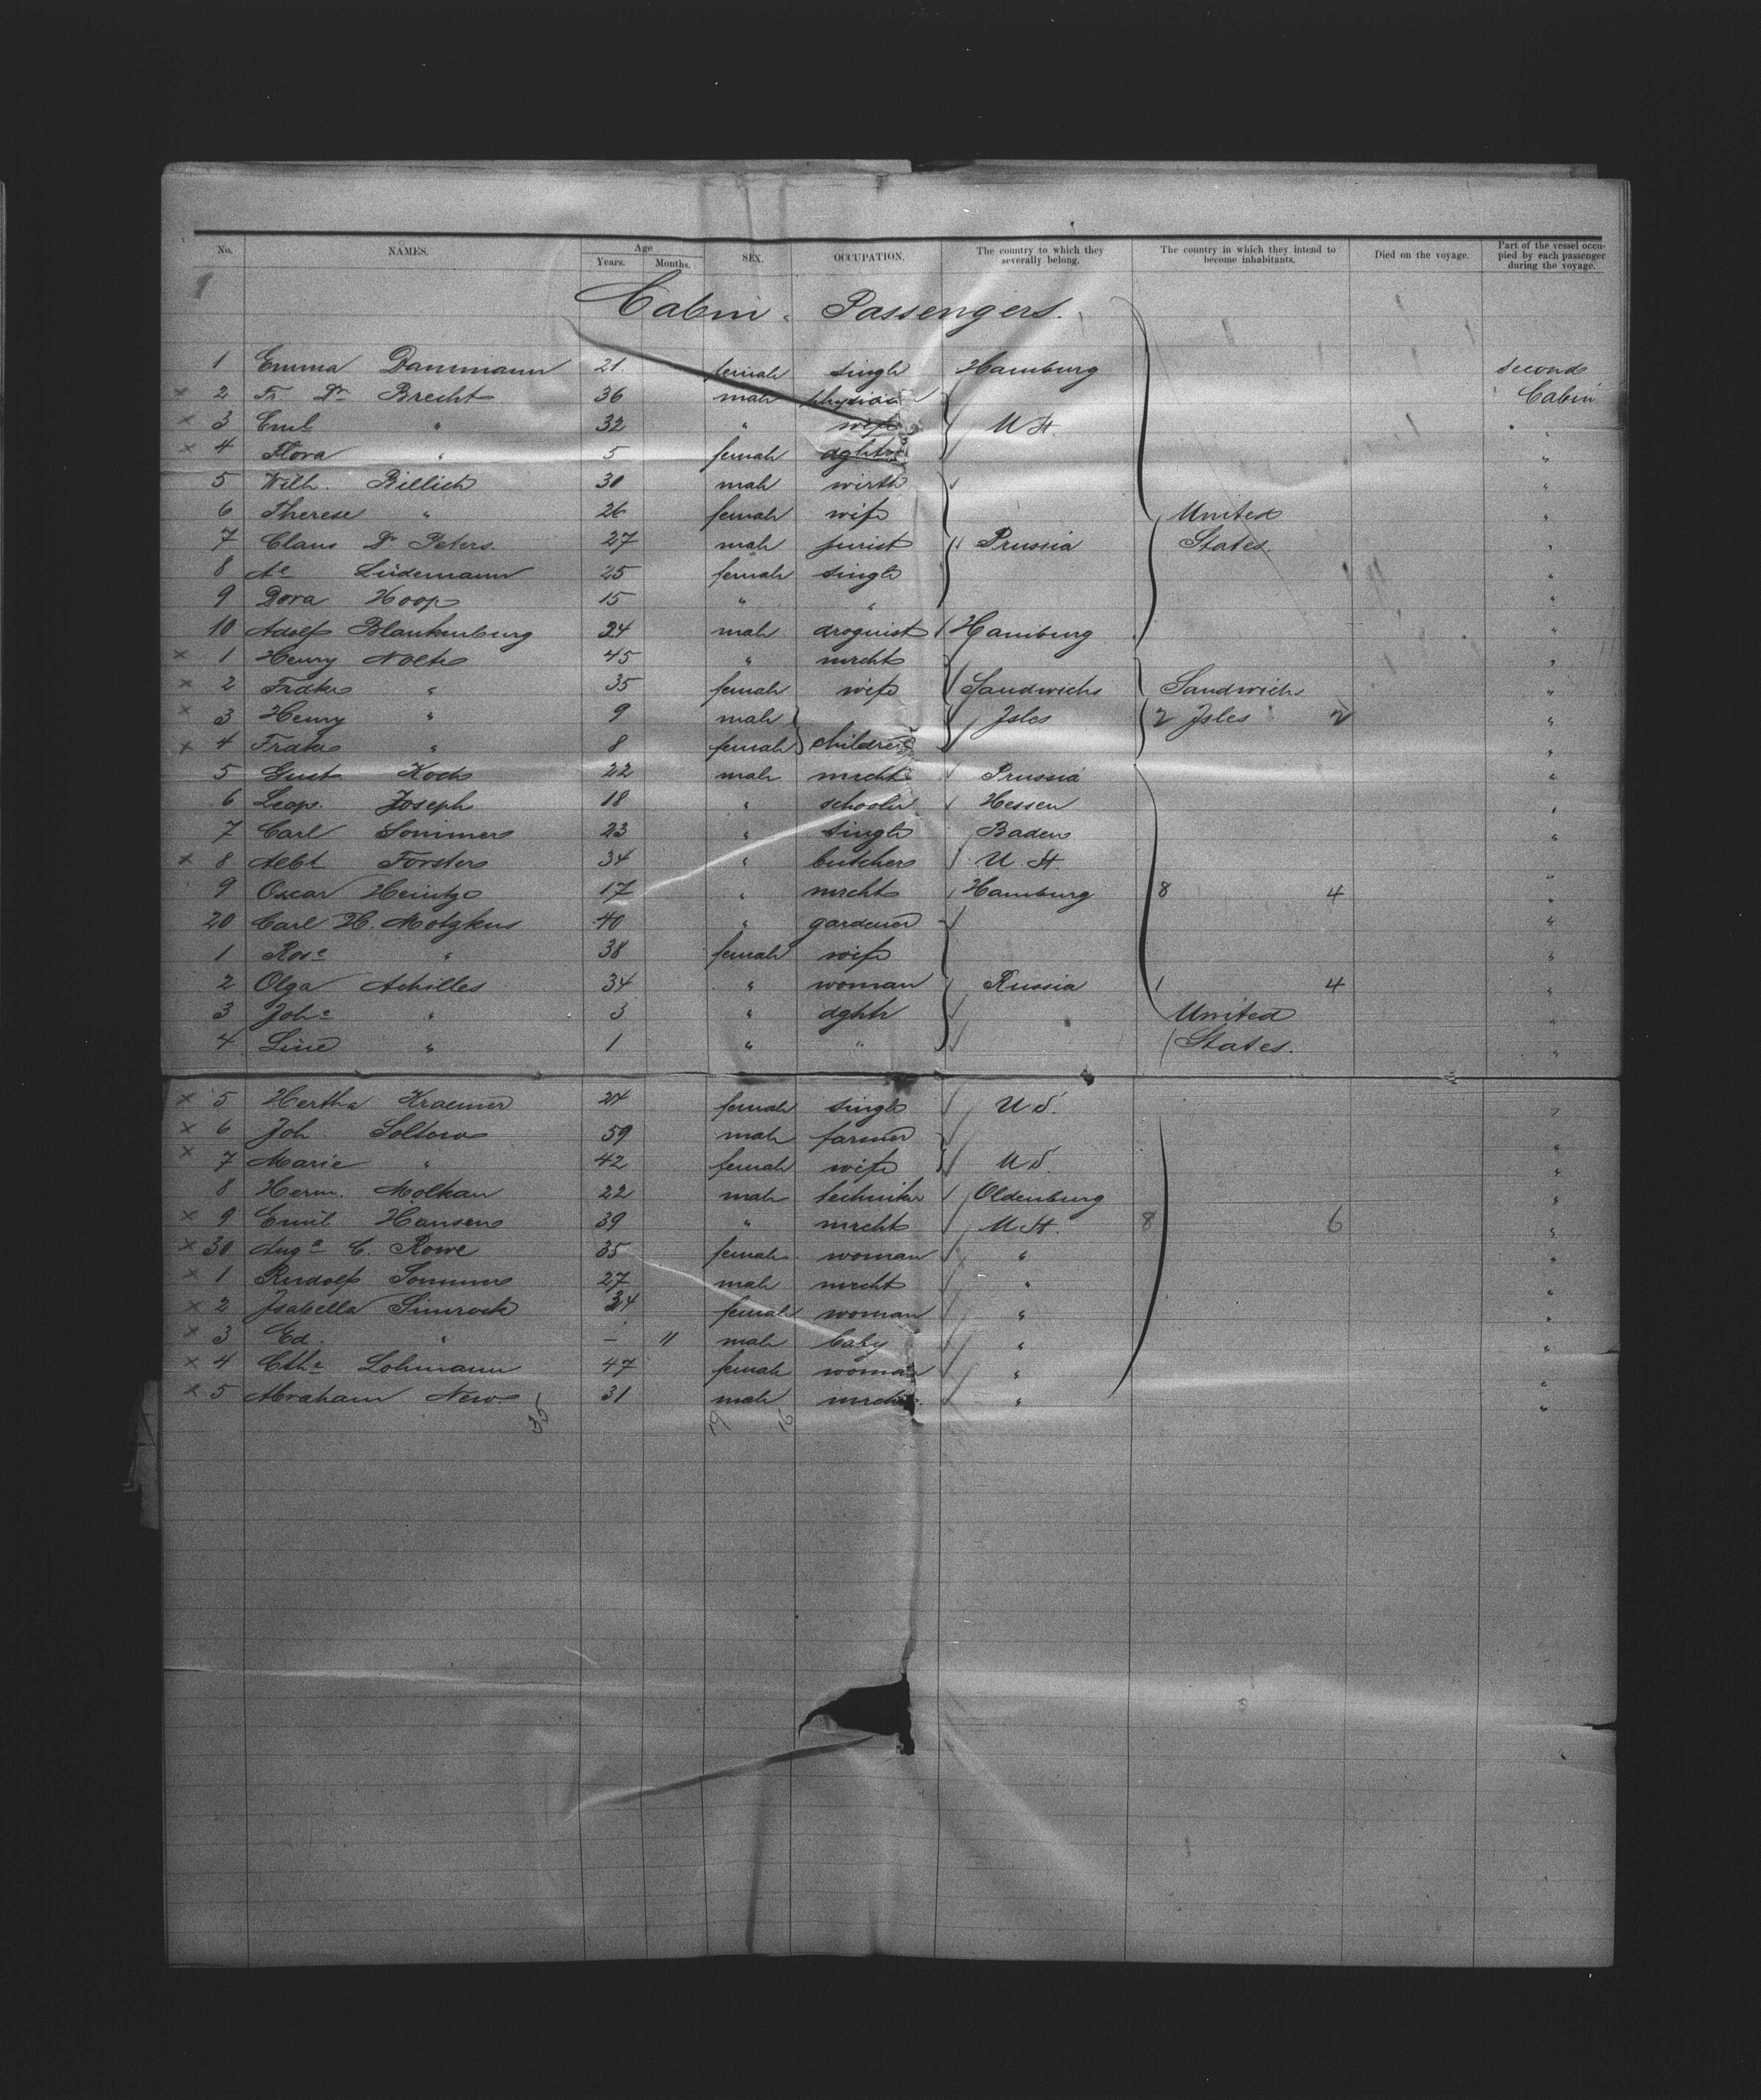 No. NAMES. Age Years. Months. SEX. OCCUPATION. The country to which they severally belong. The country in which they intend to become inhabitants. Died on the voyage. Part of the vessel occupied by each passenger during the voyage.
Cabin-Passengers.
1 Emma Dammann 21. female single Hamburg second
x 2 Fr. Dr. Brecht 36 male physician Cabin
x 3 Emil " 32 " wife U St. "
x 4 Flora " 5 female dghtr "
5 Wilh. Billich 30 male wirth "
6 Therese " 26 female wife United "
7 Claus Dr. Peters. 27 male jurist Prussia States. "
8 Ae Lüdemann 25 female single "
9 Dora Hoop 15 " " "
10 Adolf Blankenburg 24 male droguist Hamburg "
x 1 Henry Nolte 45 " mrcht "
x 2 Fradke " 35 female wife Sandwichs Sandwichs "
x 3 Henry " 9 male Isles 2 Isles 2 "
x 4 Fradke " 8 female children "
5 Gust. Koch 22 male mrcht Prussia "
6 Leop. Joseph 18 " schooler Hessen "
7 Carl Sommer 23 " single Baden "
x 8 Albt Forster 34 " butcher U. St. "
9 Oscar Heintze 17 " mrcht Hamburg 8 4 "
20 Carl H. Motzkus 40 " gardener "
1 Rose " 38 female wife "
2 Olga Achilles 34 " woman Russia 1 4 "
3 Johe " 3 " dghtr United "
4 Line " 1 " " States. "
x 5 Hertha Kraemer 24 female single U S. "
x 6 Joh. Soltow 59 male farmer "
x 7 Marie " 42 female wife U S. "
8 Herm. Molkau 22 male techniker Oldenburg "
x 9 Emil Hansen 39 " mrcht U St. 8 6 "
x 30 Auga C. Rowe 35 female woman " "
x 1 Rudolf Sommer 27 male mrcht " "
x 2 Isabella Simrock 34 female woman " "
x 3 Ed. " - 11 male baby " "
x 4 Cthe Lohmann 47 female woman " "
x 5 Abraham New 31 male mrcht " "
35 19 16